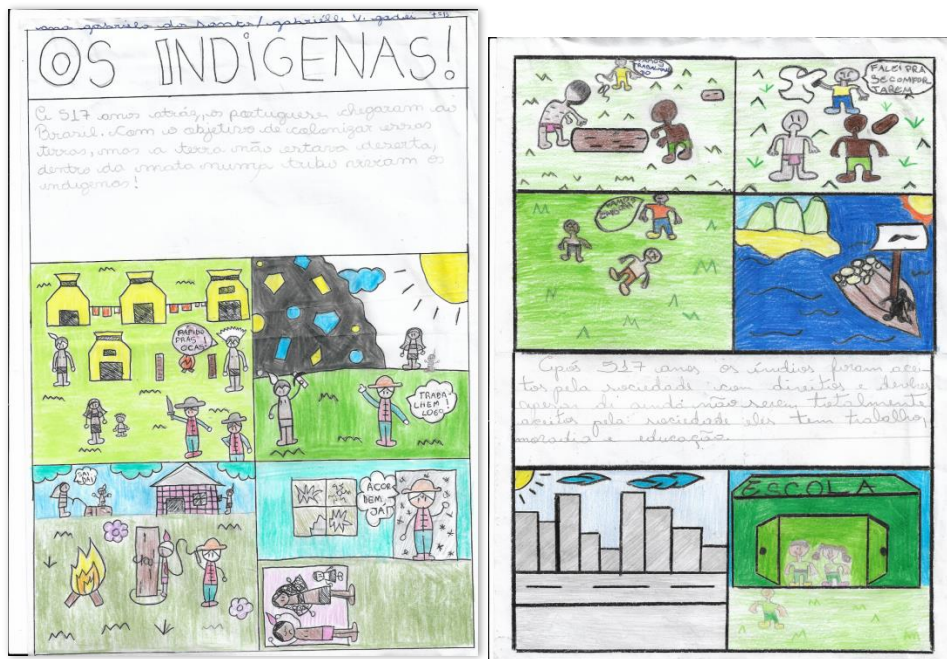 ana gabriela dos Santos/ gabrielli V.
OS INDIGENAS!
517 anos atrás, os portugueses chegaram ao
Brasil. Com o objetivo de colonizar essas
terras, mas a terra não estava deserta,
dentro da mata numa tribo os
indigenas!
RAPIDO
PRAS
OCAS!
TRABA
LHEM!
LOGO
SAI
DAI!
ACOR
DEM
JA!
VAMOS
TRABALHAR
FALEI PRA
SE COMPOR
TAREM
VAMOS
Após 517 anos os índios foram acei
tos pela sociedade com direitos e
apesar de ainda não serem totalmente
aceitos pela sociedade eles tem trabalho,
moradia e educação.
ESCOLA